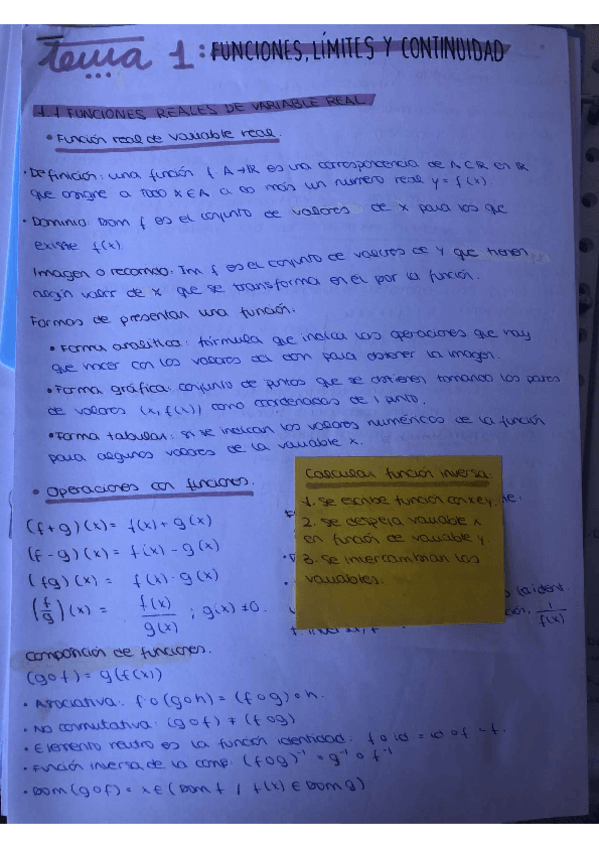 Tema 1: FUNCIONES, LÍMITES Y CONTINUIDAD
1.1 FUNCIONES REALES DE VARIABLE REAL
• Función real de variable real.
• Definición: una función f: A→R es una correspondencia de A C R en R
que asigne a TODO x ∈ A a lo más un numero real y = f(x).
• Dominio: Dom f es el conjunto de valores de x para los que
existe f(x).
Imagen o recorrido: Im f es el conjunto de valores de y que tienen
algún valor de x que se transforma en él por la función.
Formas de presentar una función:
• Forma analítica: fórmula que indica las operaciones que hay
que hacer con los valores del dom para obtener la imagen.
• Forma gráfica: conjunto de puntos que se obtienen tomando los pares
de valores (x, f(x)) como coordenadas de 1 punto.
• Forma tabular: si se indican los valores numéricos de la función
para algunos valores de la variable x.
• Operaciones con funciones.
(f+g)(x) = f(x) + g(x)
(f-g)(x) = f(x) - g(x)
(fg)(x) = f(x) · g(x)
(f/g)(x) = f(x)/g(x) ; g(x) ≠ 0.
Calcular función inversa:
1. Se escribe función con x e y.
2. Se despeja variable x
en función de variable y.
3. Se intercambian las
variables.
la ident.
1/f(x)
Composición de funciones.
(g o f) = g(f(x))
• Asociativa: f o (g o h) = (f o g) o h.
• No conmutativa: (g o f) ≠ (f o g)
• Elemento neutro es la función identidad: f o id = id o f = f.
• Función inversa de la comp: (f o g)⁻¹ = g⁻¹ o f⁻¹
• Dom (g o f) = x ∈ (Dom f / f(x) ∈ Dom g)